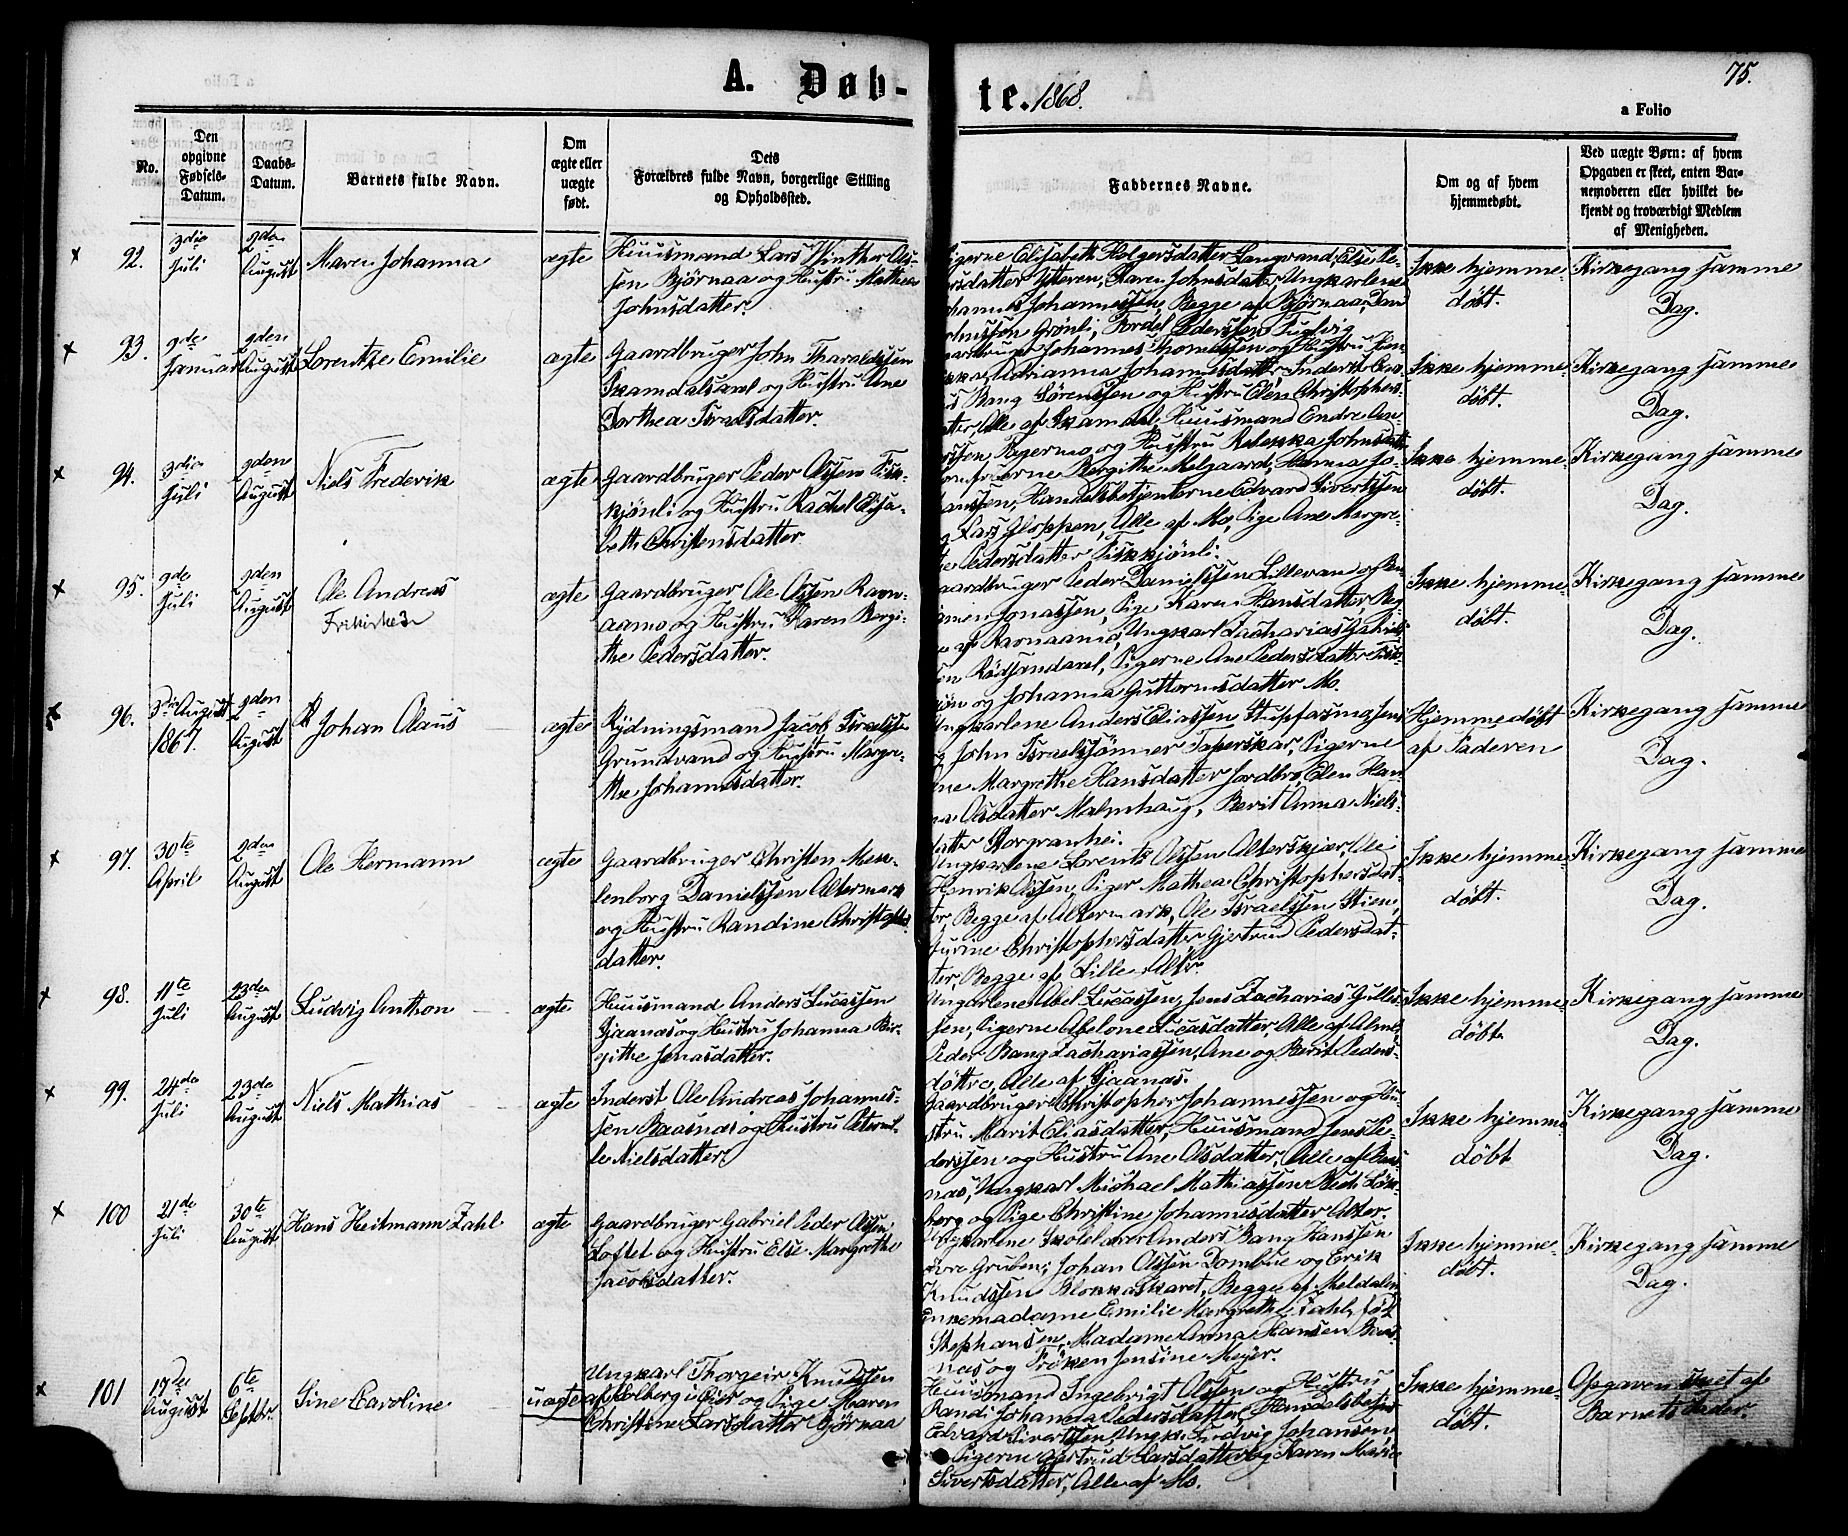 75.
A. Døb-
te. 1868.
a Folio
No.
Den opgivne Fødsels-Datum.
Daabs-Datum.
Barnets fulde Navn.
Om ægte eller uægte født.
Dets Forældres fulde Navn, borgerlige Stilling og Opholdssted.
Faddernes Navne.
Om og af hvem hjemmedøbt.
Ved uægte Børn: af hvem Opgaven er skeet, enten Barnemoderen eller hvilket bekjendt og troværdigt Medlem af Menigheden.
92.
3die Juli
2den August
Maren Johanna
ægte
Huusmand Lars Winther Ols-
sen Bjørnaa og Hustru Mathea
Johnsdatter.
Pigerne Elisabeth Holgersdatter Langvand, Else Pe-
dersdatter Ytteren, Karen Johnsdatter, Ungkarlene
Johannes Johannessen, Begge af Bjørnaa, Dan
Johnssøn Grønli, Tordel Pederssøn Fuglvig
Ikke hjemme-
døbt.
Kirkegang samme
Dag.
93.
9de Januar
2den August
Lorentze Emilie
ægte
Gaardbruger John Tharaldssen
Skamdalsaxel og Hustru Ane
Dorthea Israelsdatter.
Gaardbruger Johannes Thomessen og Hustru
Adrianna Johannesdatter, Inderst
Bang Sørenssen og Hustru Elen Christophers-
datter, Alle af Skamdal, Huusmand Endre An-
Ikke hjemme-
døbt.
Kirkegang samme
Dag.
94.
3die Juli
2den August
Niels Frederik
ægte
Gaardbruger Peder Olssen Fisk-
kjønli og Hustru Rachel Elisa-
beth Christensdatter
og Hustru Rebekka Johnsdatter
Jomfruerne Bergithe Melgaard, Hanna Jo-
hanssen, Handelsbetjenterne Edvard Sivertssen
og Lars Gloppen, Alle af Mo, Pige Ane Margre-
the Pedersdatter Fiskkjønli.
Ikke hjemme-
døbt.
Kirkegang samme
Dag.
95.
9de Juli
2den August
Ole Andreas
Frikirke
ægte
Gaardbruger Ole Olssen Ravn-
aamo og Hustru Karen Bergi-
the Pedersdatter.
Gaardbruger Peder Danielssen Lillevand og Ben-
jamin Jonassen, Pige Karen Hansdatter, Beg-
ge af Ravnaamo, Ungkarl Zacharias Gabriels-
sen Rødsandaxel, Pigerne Ane Pedersdatter
og Johanna Guttormsdatter Mo.
Ikke hjemme-
døbt.
Kirkegang samme
Dag.
96.
3die August
1867.
2den August
Johan Olaus
ægte
Rydningsmand Jacob Israelssen
Grundvand og Hustru Margre-
the Johannesdatter.
Ungkarlene Anders Eliassen Stupfarsmosen
og John Israelssønner Tapeskar, Pigerne
Ane Margrethe Hansdatter Jordbro, Elen Han-
na Olsdatter Malmhaug, Berit Anna Niels-
datter Storgranhei.
Hjemmedøbt
af Faderen
Kirkegang samme
Dag.
97.
30te April
2den August
Ole Hermann
ægte
Gaardbruger Christen Mek-
lenborg Danielssen Altermark
og Hustru Randine Christophers-
datter.
Ungkarlene Lorents Olssen Alterskjær, Ole
Henrik Olssen, Piger Mathea Christophersdat-
ter, Begge af Altermark, Ole Israelssen Stien,
Gurine Christophersdatter, Gjertrud Pedersdat-
ter, Begge af Lille Alter.
Ikke hjemme-
døbt.
Kirkegang samme
Dag.
98.
11te Juli
23de August
Ludvig Anthon
ægte
Huusmand Anders Lucassen
Sjaanæs og Hustru Johanna Bir-
githe Jonasdatter.
Ungkarlene Abel Lucassen, Jens Zacharias Gulles-
sen, Pigerne Abelone Lucasdatter, Alle af
Peder Bang Zachariassen, Ane og Berit Peders-
døttre, Alle af Sjaanæs.
Ikke hjemme-
døbt
Kirkegang samme
Dag.
99.
24de Juli
23de August
Niels Mathias
ægte
Inderst Ole Andreas Johannes-
sen Baasnæs og Hustru Peternil-
le Nielsdatter
Gaardbruger Christopher Johannessen og Hu-
stru Marit Eliasdatter, Huusmand Jens Pe-
derssen og Hustru Ane Olsdatter, Alle af Baas-
næs, Ungkarl Michael Mathiassen
berg og Pige Christine Johannesdatter Alter.
Ikke hjemme-
døbt
Kirkegang samme
Dag.
100
21de Juli
30te August
Hans Heitmann Zahl
ægte
Gaardbruger Gabriel Peder Olssen
Loftet og Hustru Else Margrethe
Jacobsdatter.
Ungkarlene Skolelærer Anders Bang Hanssen
Øvre Gruben, Johan Olssen Dombue og Erik
Knudssen Blokkaskaret, Begge af Meldalen
Enkemadame Emilie Margrethe Zahl, født
Stephansen, Madame Anna Hansen Baas-
næs og Frøken Jensine Meyer.
Ikke hjemme-
døbt.
Kirkegang samme
Dag.
101
17de August
6te Septbr.
Sine Caroline
uægte
Ungkarl Thorgeir Knudssen
af og Pige Maren
Christine Larsdatter Bjørnaa
Huusmand Ingebrigt Olssen og Hustru
Randi Johanna Pedersdatter, Handelsbetjent
Edvard Sivertssen, Ungk. Ludvig Johansen,
Pigerne Gjertrud Larsdatter og Karen Marie
Sivertsdatter, Alle af Mo.
Ikke hjemme-
døbt.
Opgaven skeet af
Barnets Fader.